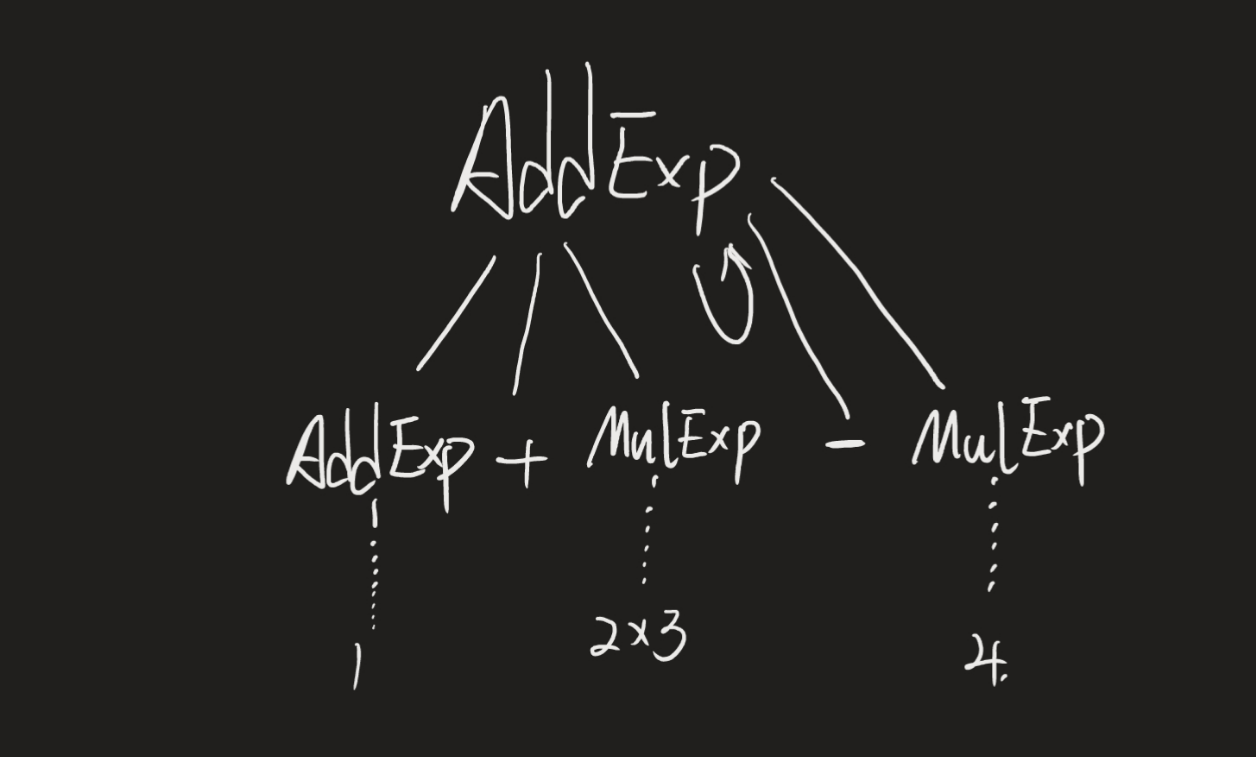 AddExp
AddExp + MulExp - MulExp
1 2×3 4